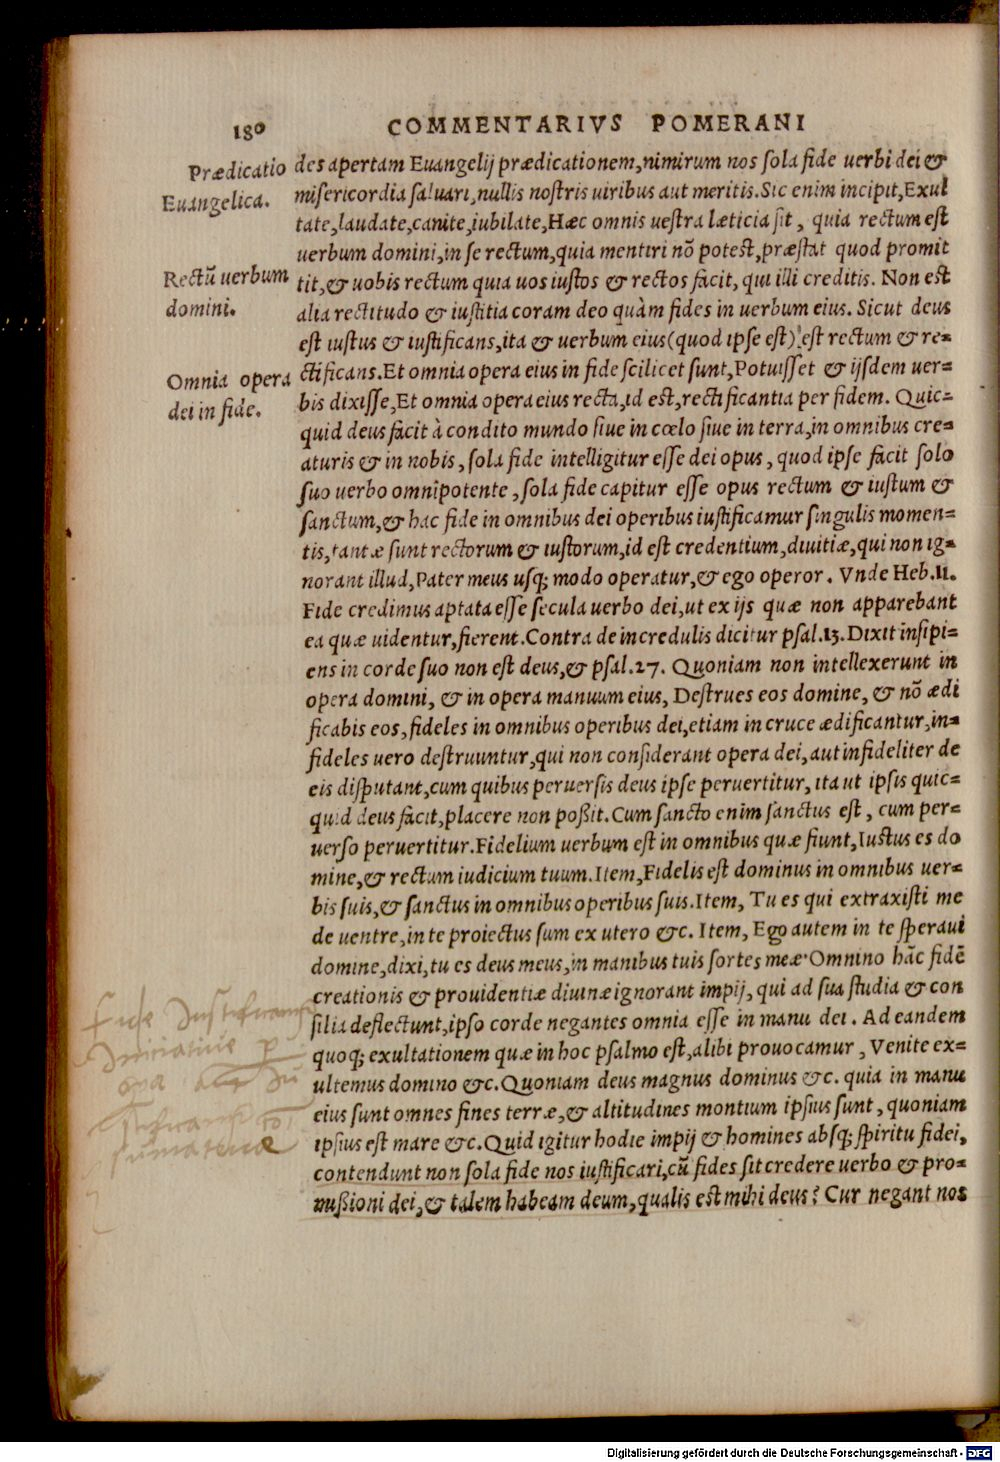 180 COMMENTARIVS POMERANI
Prædicatio
Euangelica.
Rectũ uerbum
domini.
Omnia opera
dei in fide.
des apertam Euangelij prædicationem, nimirum nos sola fide uerbi dei &
misericordia saluari, nullis nostris uiribus aut meritis. Sic enim incipit, Exul
tate, laudate, canite, iubilate, Hæc omnis uestra læticia sit, quia rectum est
uerbum domini, in se rectum, quia mentiri nõ potest, præstat quod promit
tit, & uobis rectum quia uos iustos & rectos facit, qui illi creditis. Non est
alia rectitudo & iustitia coram deo quàm fides in uerbum eius. Sicut deus
est iustus & iustificans, ita & uerbum eius (quod ipse est) est rectum & re=
ctificans. Et omnia opera eius in fide scilicet sunt, Potuisset & ijsdem uer=
bis dixisse, Et omnia opera eius recta, id est, rectificantia per fidem. Quic=
quid deus facit à condito mundo siue in cœlo siue in terra, in omnibus cre=
aturis & in nobis, sola fide intelligitur esse dei opus, quod ipse facit solo
suo uerbo omnipotente, sola fide capitur esse opus rectum & iustum &
sanctum, & hac fide in omnibus dei operibus iustificamur singulis momen=
tis, tantæ sunt rectorum & iustorum, id est credentium, diuitiæ, qui non ig=
norant illud, Pater meus usq; modo operatur, & ego operor. Vnde Heb.11.
Fide credimus aptata esse secula uerbo dei, ut ex ijs quæ non apparebant
ea quæ uidentur, fierent. Contra de incredulis dicitur psal.13. Dixit insipi=
ens in corde suo non est deus, & psal.27. Quoniam non intellexerunt in
opera domini, & in opera manuum eius, Destrues eos domine, & nõ ædi
ficabis eos, fideles in omnibus operibus dei, etiam in cruce ædificantur, in=
fideles uero destruuntur, qui non considerant opera dei, aut infideliter de
eis disputant, cum quibus peruersis deus ipse peruertitur, ita ut ipsis quic=
quid deus facit, placere non poßit. Cum sancto enim sanctus est, cum per=
uerso peruertitur. Fidelium uerbum est in omnibus quæ fiunt, Iustus es do
mine, & rectum iudicium tuum. Item, Fidelis est dominus in omnibus uer=
bis suis, & sanctus in omnibus operibus suis. Item, Tu es qui extraxisti me
de uentre, in te proiectus sum ex utero &c. Item, Ego autem in te speraui
domine, dixi, tu es deus meus, in manibus tuis sortes meæ. Omnino hãc fidẽ
creationis & prouidentiæ diuinæ ignorant impij, qui ad sua studia & con
silia deflectunt, ipso corde negantes omnia esse in manu dei. Ad eandem
quoq; exultationem quæ in hoc psalmo est, alibi prouocamur, Venite ex=
ultemus domino &c. Quoniam deus magnus dominus &c. quia in manu
eius sunt omnes fines terræ, & altitudines montium ipsius sunt, quoniam
ipsius est mare &c. Quid igitur hodie impij & homines absq; spiritu fidei,
contendunt non sola fide nos iustificari, cũ fides sit credere uerbo & pro=
mißioni dei, & talem habeam deum, qualis est mihi deus? Cur negant nos
Digitalisierung gefördert durch die Deutsche Forschungsgemeinschaft - DFG